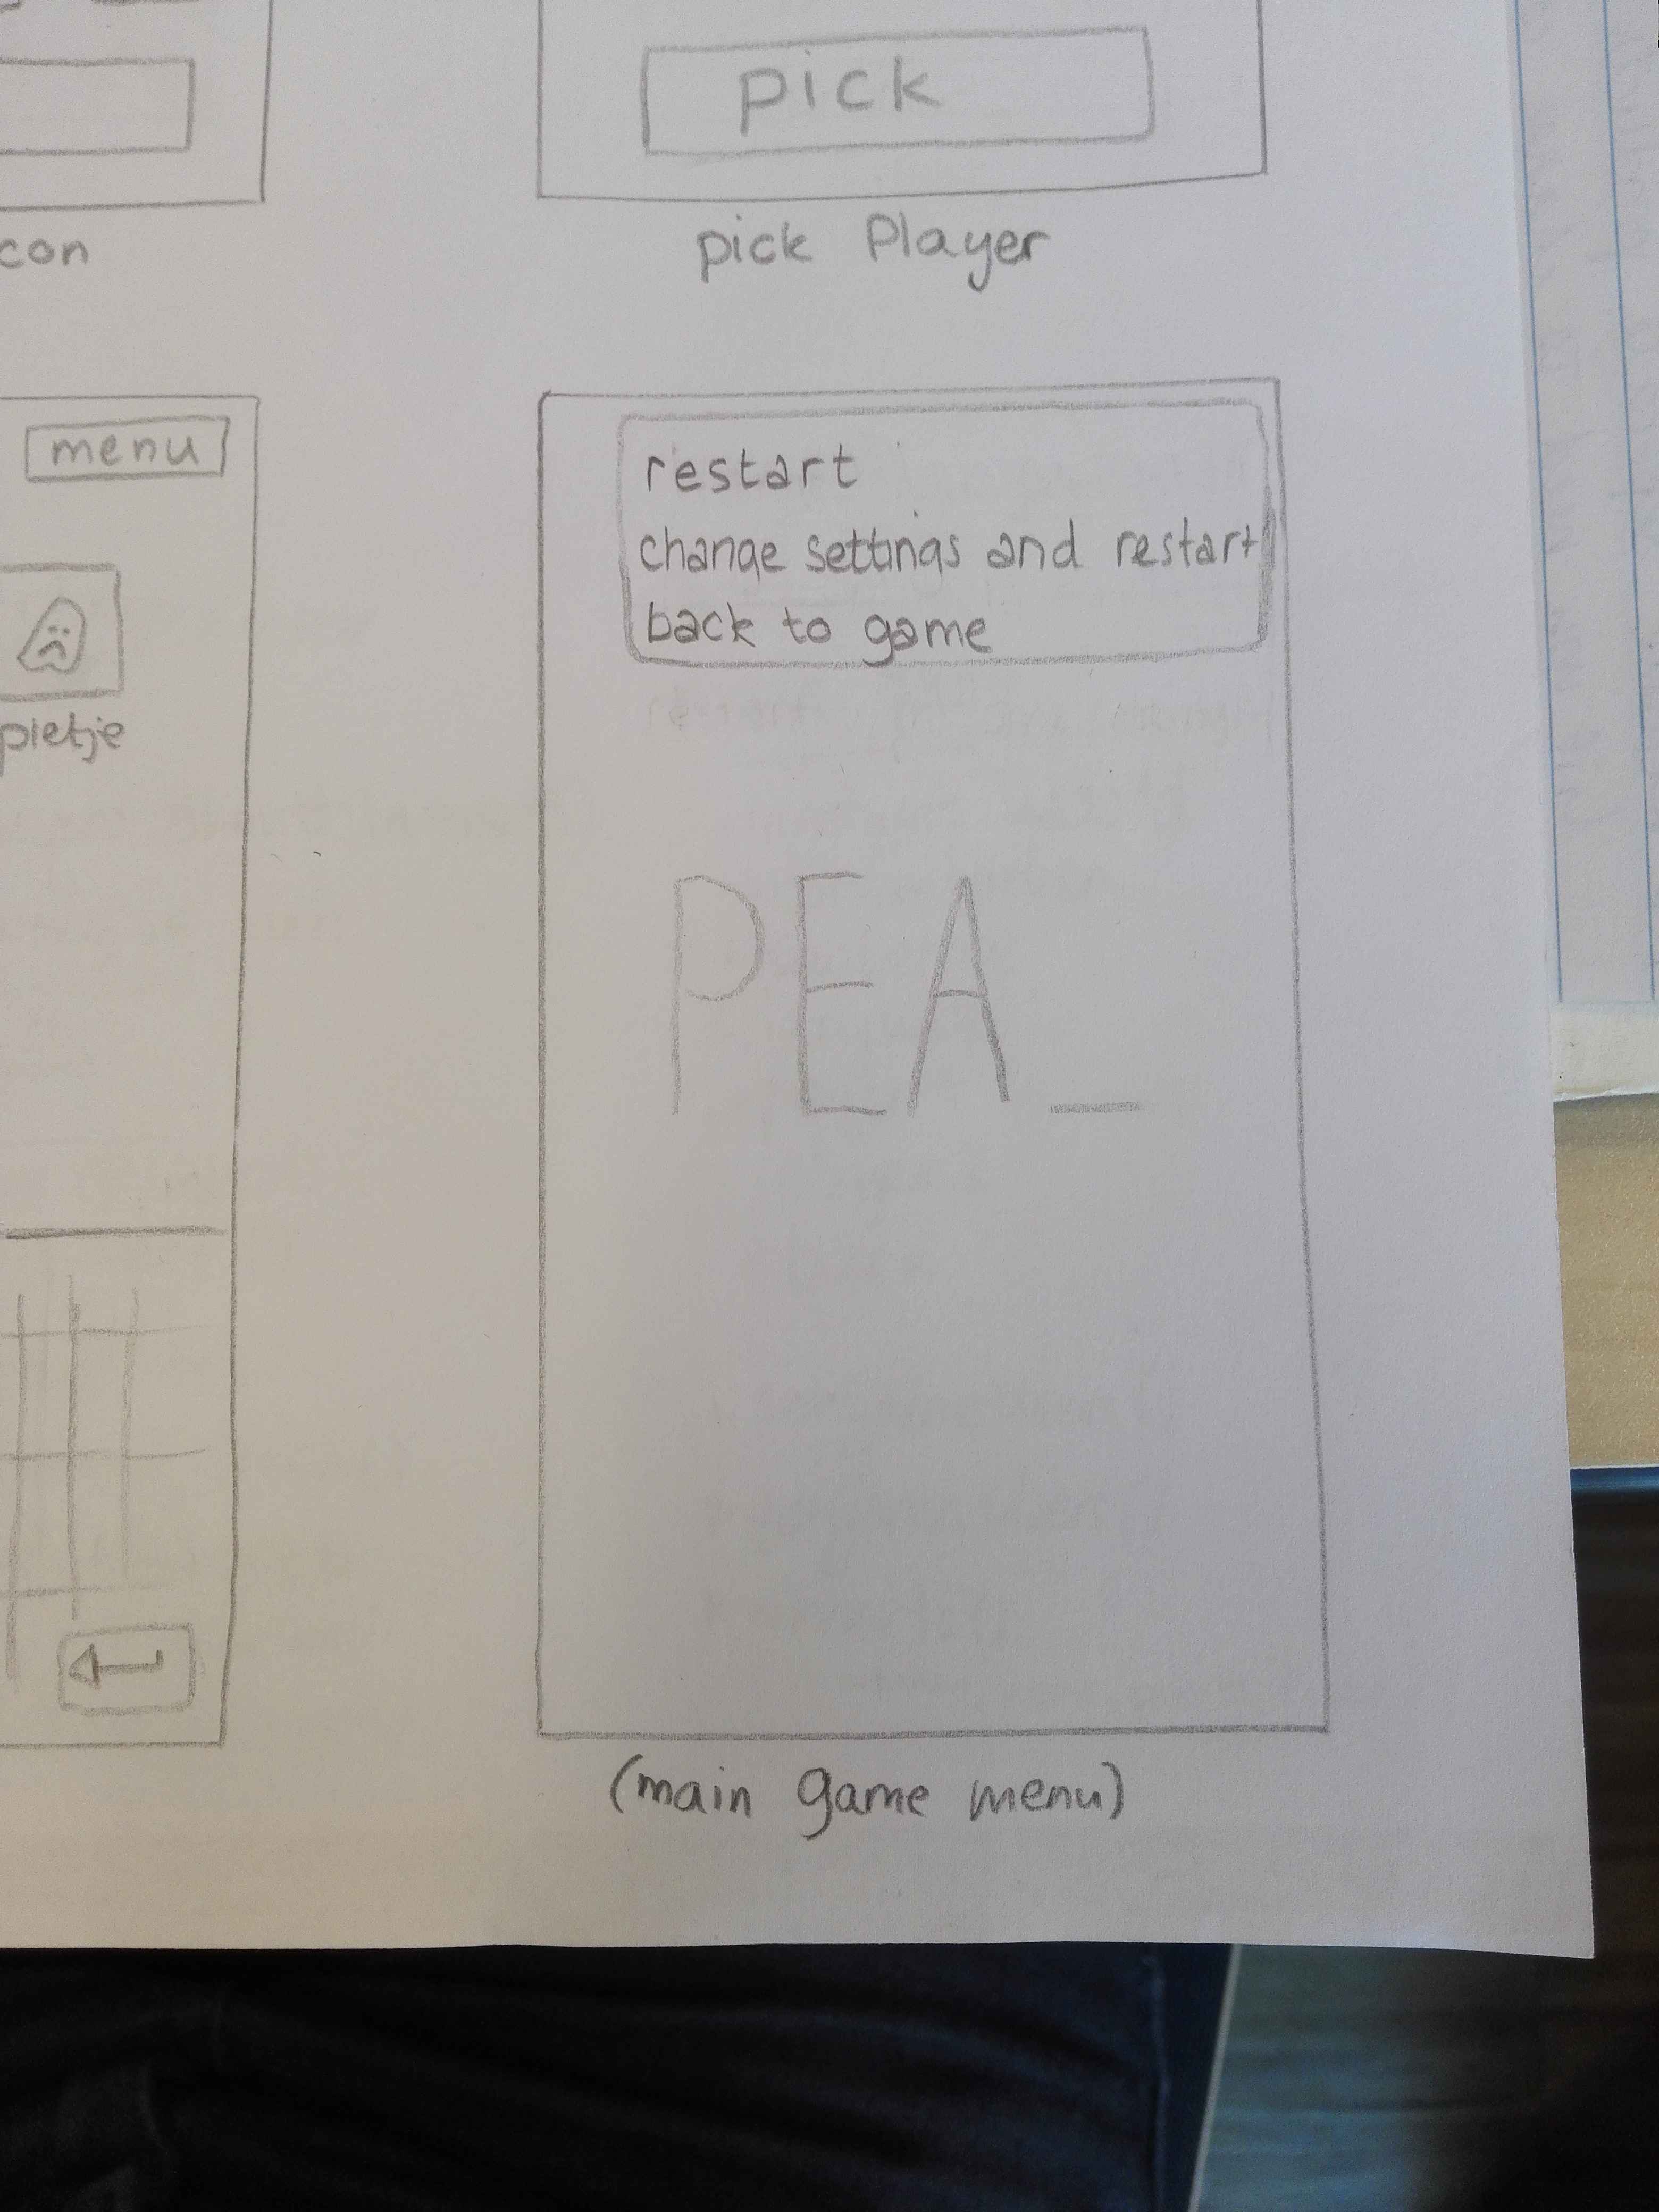 pick
con
pick Player
menu
pietje
restart
change settings and restart
back to game
PEA_
(main game menu)